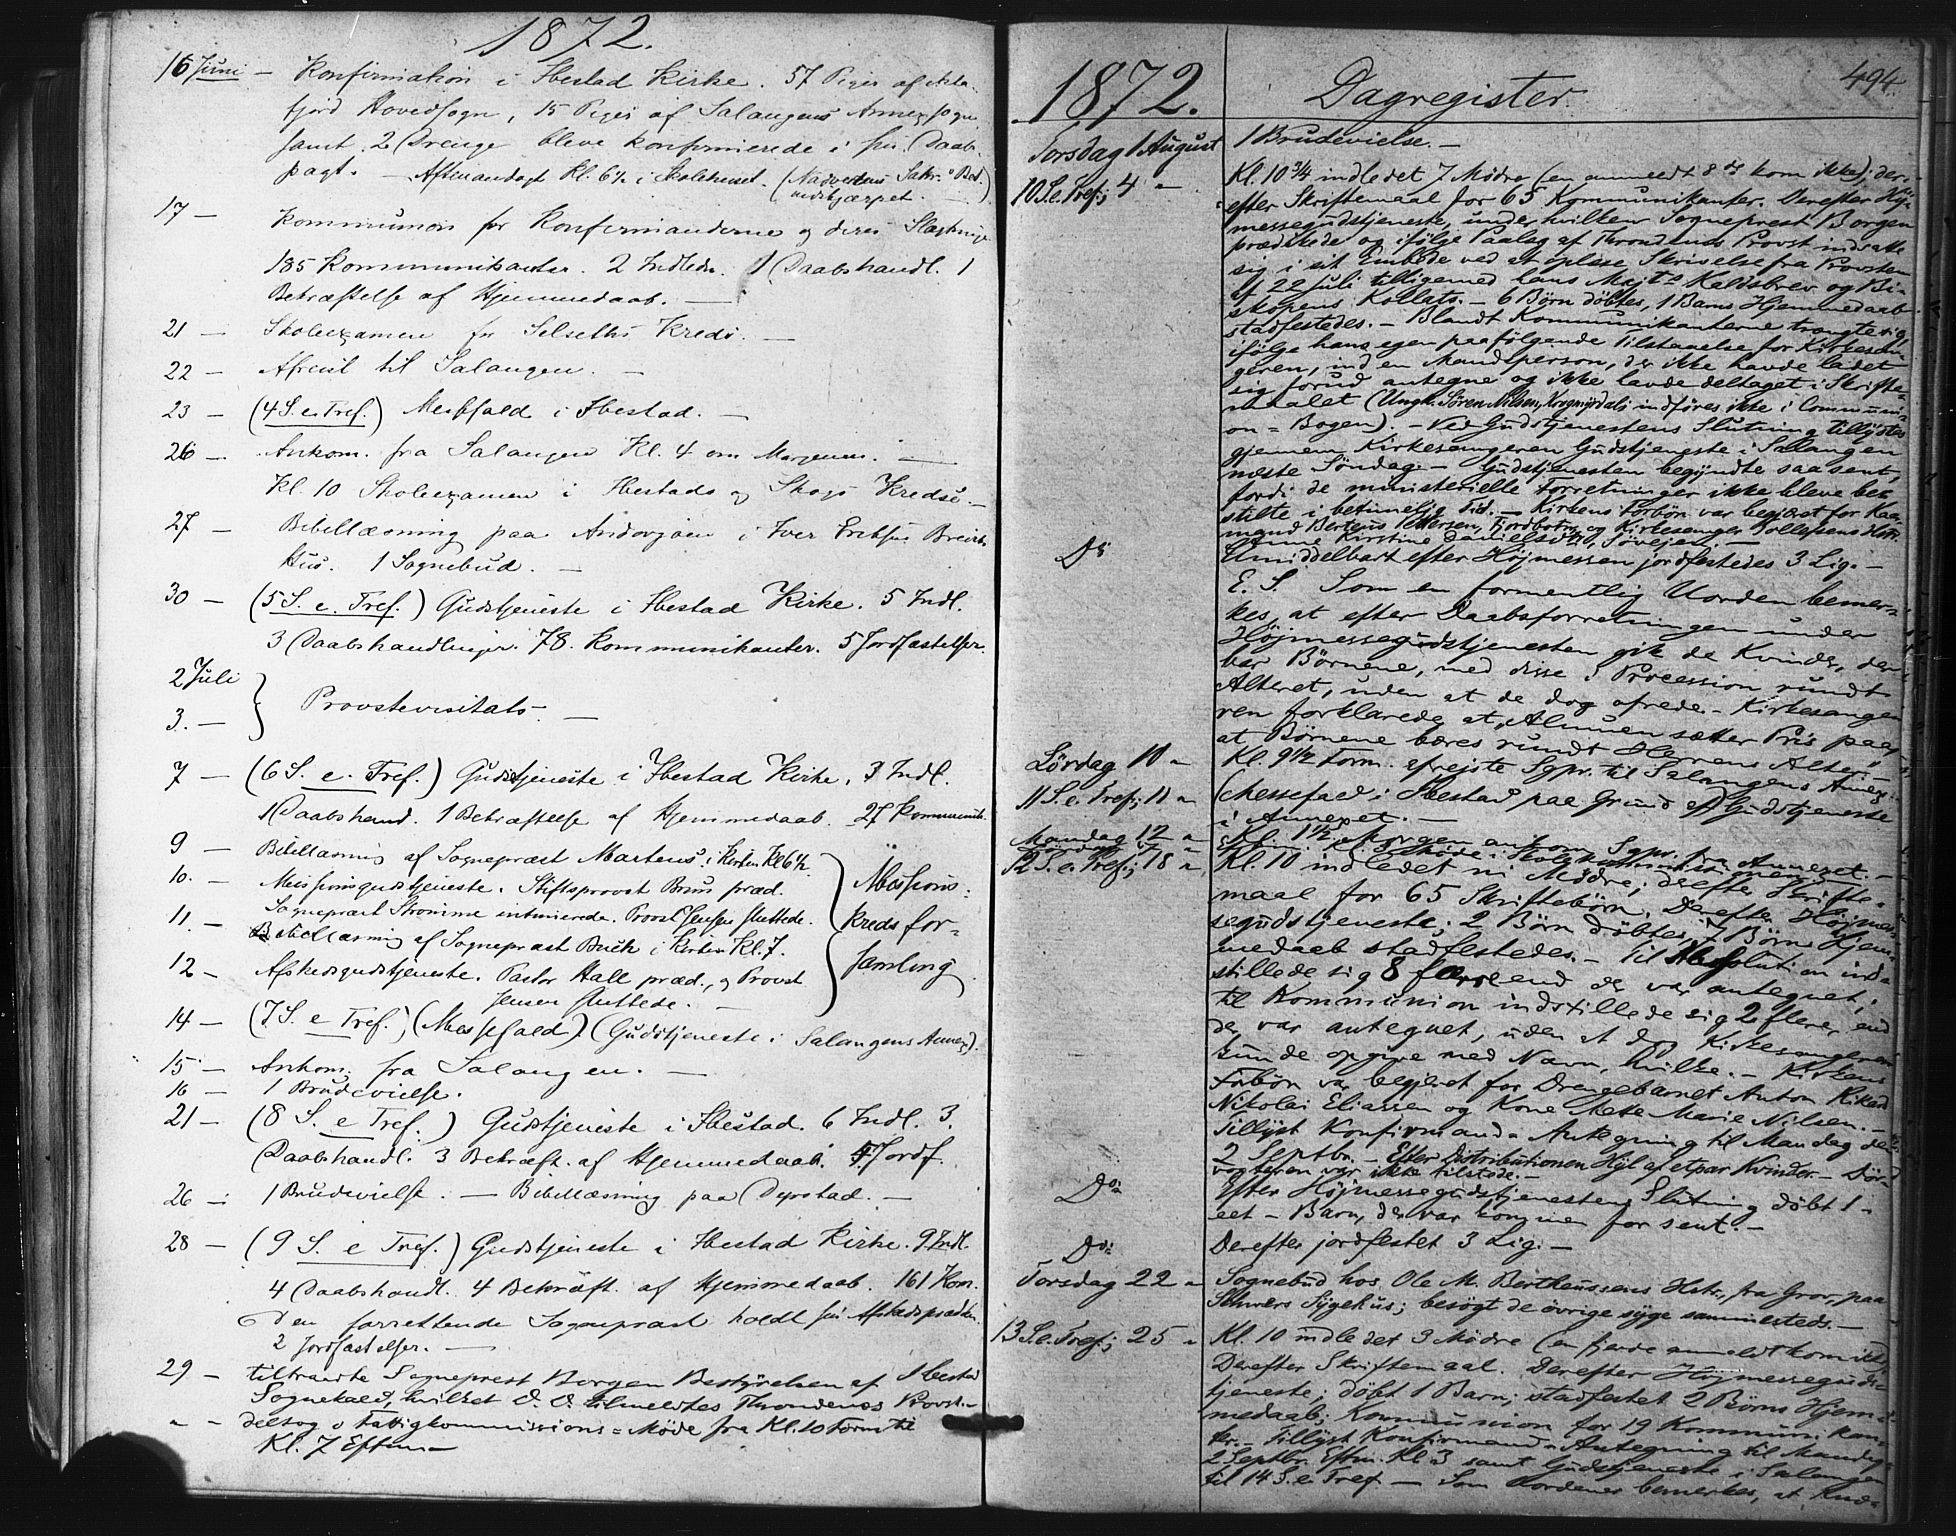 1872.
16 Juni – Konfirmation i Ibestad Kirke. 57 Piger af Asta-
fjord Hovedsogn, 15 Piger af Salangens Annexsogn
samt 2 Drenge bleve konfirmerede i sin Daab-
pagt. – Aftenandagt Kl. 6½ i Skolehuset. (Nadverens Sakr.
indskjærpet.
17 – Kommunion for Konfirmanderne og deres Slægtninge
185 Kommunikanter. 2 Indledn. 1 Daabshandl. 1
Bekræftelse af Hjemmedaab. –
21 – Skoleexamen for Selseths Kreds. –
22 – Afreist til Salangen. –
23 – (4 S. e. Tref.) Messfald i Ibestad. –
26 – Ankom. fra Salangen Kl. 4 om Morgenen. –
Kl. 10 Skoleexamen i Ibestads og Skogs Kredse. –
27 – Bibellæsning paa Andorjaen i Iver Eriksens
Hus. 1 Sognebud. –
30 – (5 S. e. Tref.) Gudstjeneste i Ibestad Kirke. 5 Indl.
3 Daabshandlinger. 78 Kommunikanter. 5 Jordfæstelser.
2 Juli
3. – } Provstevisitats. –
7 – (6 S. e. Tref.) Gudstjeneste i Ibestad Kirke. 3 Indl.
1 Daabshand. 1 Bekræftelse af Hjemmedaab. 27 Kommunik.
9 – Bibellæsning af Sognepræst Martens i Kirken Kl 6½.
10. – Missionsgudstjeneste. Stiftsprovst Bruun præd.
Missions-
11. – Sognepræst Strømme intimerede. Provst Jensen sluttede.
kredsfor-
Bibellæsning af Sognepræst Buck i Kirken Kl. 7.
12 – Afskedsgudstjeneste. Pastor Hall præd., og Provst
samling
Jensen sluttede. –
14 – (7 S. e Tref.) (Messefald). (Gudstjeneste i Salangens Annex).
15 – Ankom. fra Salangen. –
16 – 1 Brudevielse.
21 – (8 S. e Tref.) Gudstjeneste i Ibestad. 6 Indl. 3.
Daabshandl. 3 Bekræft. af Hjemmedaab. 4 Jordf.
26 – 1 Brudevielse. – Bibellæsning paa Dyrstad. –
28 – (9 S. e Tref.) Gudstjeneste i Ibestad Kirke. 9 Indl.
4 Daabshandl. 4 Bekræft. af Hjemmedaab. 161 Kom.
Den forrettende Sognepræst holdt sin Afskedspræd.
2 Jordfæstelser. –
29 – tiltraadte Sogneprest Borgen Bestyrelsen af Ibestad
Sognekald, hvilket D. D. tilmeldtes Throndenæs Provsti. –
" – deltog i Fattigkommissions-Møde fra Kl. 10 Form til
Kl. 7 Efterm –
1872. Dagregister. 494
Torsdag 1 August 1 Brudevielse. –
10 S. e. Tref; 4 " Kl. 10¾ indledet 7 Mødre (en anmeldt 8de kom ikke); der-
efter Skriftemaal for 65 Kommunikanter. Derefter Høj-
messegudstjeneste, under hvilken Sogneprest Borgen
prædikede og ifølge Paalæg af Throndenæs Provst indsatte
sig i sit Embede ved at oplæse Skrivelse fra Provsten
af 22 Juli tilligemed hans Majts Kaldsbrev og Bi-
skopens Kollats. – 6 Børn døbtes, 1 Barns Hjemmedaab
stadfestedes. – Blandt Kommunikanterne trængte sig,
ifølge hans egen paafølgende Tilstaaelse for Kirkesan-
geren, ind en Mandsperson, der ikke havde ladet
sig forud antegne og ikke havde deltaget i Skrifte-
maalet (Ungk. Søren Nilsen, Krogmyrdal; indføres ikke i Communi-
on-Bogen). – Ved Gudstjenestens Slutning tillystes
gjennem Kirkesangeren Gudstjeneste i Salangen
næste Søndag. – Gudstjenesten begyndte saa sent,
fordi de ministerielle Forretninger ikke bleve be-
stilte i betimelig Tid. – Kirkens Forbøn var begjært for Kaa-
mand Bertens Pettersen, Fjordbotn, og Kirkesanger Tollefsens Hstr.
Anne Kirstine Danielsdtr, Søvejen. –
Do Umiddelbart efter Højmessen jordfestedes 3 Lig. –
E. S. Som en formentlig Uorden bemær-
kes, at efter Daabsforretningen under
Højmessegudstjenesten gik de Kvinder, der
bar Børnene, med disse i Procession rundt
Alteret, uden at de dog ofrede. – Kirkesange-
ren forklarede, at „Almuen sætter Pris paa,
at Børnene bæres rundt Herrens Alter". –
Lördag 10 " Kl. 9½ Form. afrejste Sgpr. til Salangens Annex. –
11 S. e. Tref; 11 " (Messefald i Ibestad paa Grund af) Gudstjeneste
i Annexet. –
Mandag 12 " Kl. 1½ Morgen ankom Sgpr. fra Annexet. –
12 S. e. Tref; 18 " Kl. 10 indledet ni Mødre; derefter Skrifte-
maal for 65 Skriftebørn. Derefter Højmes-
segudstjeneste; 2 Børn døbtes, 7 Børns Hjem-
medaab stadfestedes. – Til Absolution ind-
stillede sig 8 færre end der var antegnet;
til Kommunion indstillede sig 2 flere, end
der var antegnet, uden at dog Kirkesangeren
kunde opgive med Navn, hvilke. – Kirkens
Forbøn var begjæret for Drengebarnet Anton Rikard
Nikolai Eliassen og Kone Mette Marie Nilsen. –
Tillyst Konfirmand-Antegning til Mandag den
2 Septbr. – Efter Distributionen Hyl af etpar Kvinder. – Dør-
vogteren var ikke tilstede. –
Do Efter Højmessegudstjenestens Slutning døbt 1 –
eet – Barn, der var kommen for sent. –
Do Derefter jordfestet 3 Lig. –
Torsdag 22 " Sognebud hos Ole M. Bertheussens Hstr., fra Grov, paa
Schvers Sygehus; besøgt de øvrige syge sammesteds. –
13 S. e. Tref; 25 " Kl. 10 indledet 3 Mødre (en fjerde anmeldt kom ikke)
Derefter Skriftemaal. Derefter Højmessegud-
tjeneste; døbt 1 Barn; stadfestet 2 Børns Hjem-
medaab; Kommunion for 19 Kommunikan-
ter. – Tillyst Konfirmand-Antegning til Mandag
2 Septbr. Eftm. Kl. 3 samt Gudstjeneste i Salangen
til 14 S. e. Tref. – Som Uordener bemerkes, at Kvin-